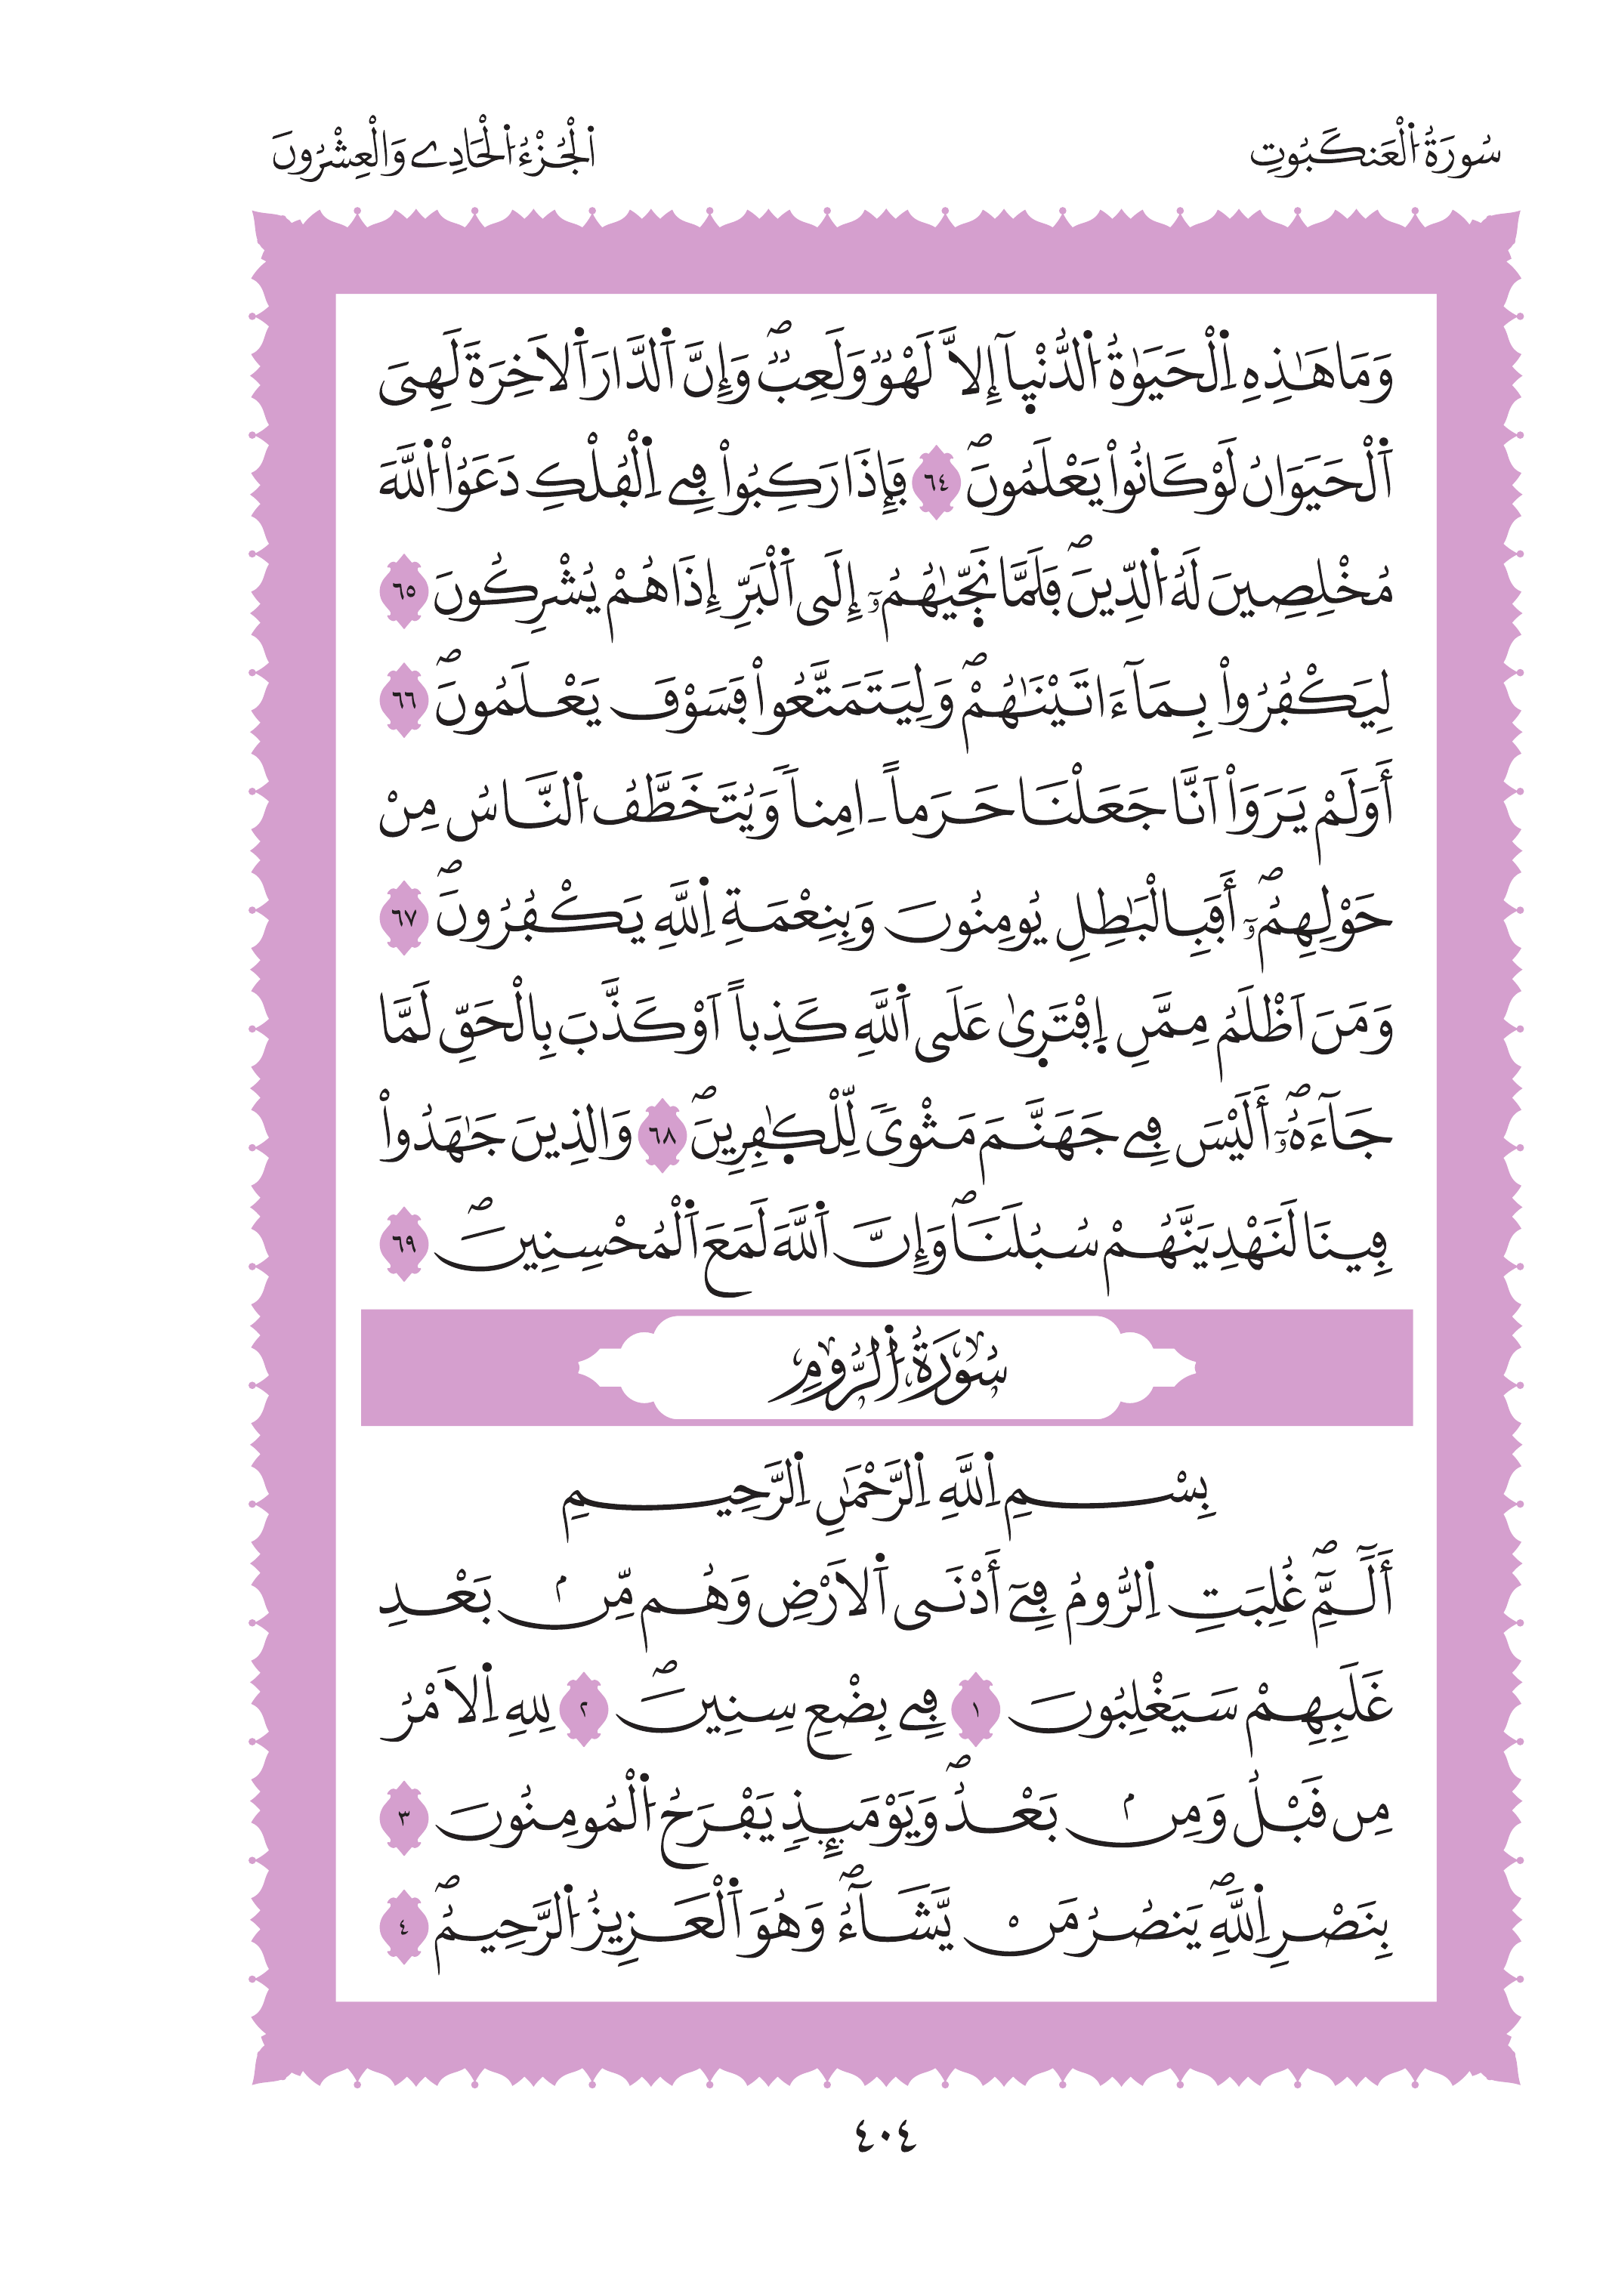 سُورَةُ اُ۬لْعَنكَبُوتِ
اَ۬لْجُزْءُ اُ۬لْحَادِے وَالْعِشْرُونَ
وَمَا هَٰذِهِ اِ۬لْحَيَوٰةُ اُ۬لدُّنْي۪آ إِلاَّ لَهْوٞ وَلَعِبٞۖ وَإِنَّ اَ۬لدَّارَ اَ۬لَاخِرَةَ لَهِيَ
اَ۬لْحَيَوَانُ لَوْ كَانُواْ يَعْلَمُونَۖ ٦٤ فَإِذَا رَكِبُواْ فِے اِ۬لْفُلْكِ دَعَوُاْ اُ۬للَّهَ
مُخْلِصِينَ لَهُ اُ۬لدِّينَۖ فَلَمَّا نَجّ۪يٰهُمُۥٓ إِلَى اَ۬لْبَرِّ إِذَا هُمْ يُشْرِكُونَ ٦٥
لِيَكْفُرُواْ بِمَآ ءَاتَيْنَٰهُمْۖ وَلِيَتَمَتَّعُواْ فَسَوْفَ يَعْلَمُونَۖ ٦٦
أَوَلَمْ يَرَوَاْ اَنَّا جَعَلْنَا حَرَماً ـ امِناٗ وَيُتَخَطَّفُ اُ۬لنَّاسُ مِنْ
حَوْلِهِمُۥٓۖ أَفَبِالْبَٰطِلِ يُومِنُونَ وَبِنِعْمَةِ اِ۬للَّهِ يَكْفُرُونَۖ ٦٧
وَمَنَ اَظْلَمُ مِمَّنِ اِ۪فْتَر۪ىٰ عَلَى اَ۬للَّهِ كَذِباً اَوْ كَذَّبَ بِالْحَقِّ لَمَّا
جَآءَهُۥٓۖ أَلَيْسَ فِے جَهَنَّمَ مَثْوىٗ لِّلْكٰ۪فِرِينَۖ ٦٨ وَالذِينَ جَٰهَدُواْ
فِينَا لَنَهْدِيَنَّهُمْ سُبُلَنَاۖ وَإِنَّ اَ۬للَّهَ لَمَعَ اَ۬لْمُحْسِنِينَۖ ٦٩
سُورَةُ اُ۬لرُّومِ
بِسْمِ اِ۬للَّهِ اِ۬لرَّحْمَٰنِ اِ۬لرَّحِيمِ
أَلَٓمِّٓۖ غُلِبَتِ اِ۬لرُّومُ فِےٓ أَدْنَى اَ۬لَارْضِ وَهُم مِّنۢ بَعْدِ
غَلَبِهِمْ سَيَغْلِبُونَ ١ فِے بِضْعِ سِنِينَۖ ٢ لِلهِ اِ۬لَامْرُ
مِن قَبْلُ وَمِنۢ بَعْدُۖ وَيَوْمَئِذٖ يَفْرَحُ اُ۬لْمُومِنُونَ ٣
بِنَصْرِ اِ۬للَّهِۖ يَنصُرُ مَنْ يَّشَآءُۖ وَهُوَ اَ۬لْعَزِيزُ اُ۬لرَّحِيمُۖ ٤
٤٠٤